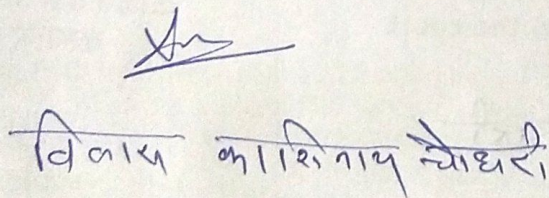 विलास काशिनाथ चौधरी